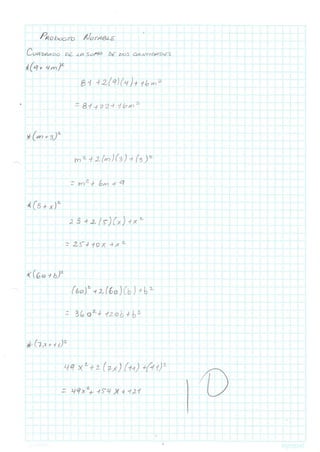 PRODUCTO NOTABLE
CUADRADO DE LA SUMA DE DOS CANTIDADES
*(9+4m)²
81 +2(9)(4)+16m²
= 81+72+16m²
*(m+3)²
m²+2(m)(3)+(3)²
= m²+6m+9
*(5+x)²
25+2(5)(x)+x²
= 25+10x+x²
*(6a+b)²
(6a)²+2(6a)(b)+b²
= 36a²+12ab+b²
*(7x+11)²
49x²+2(7x)(11)+(11)²
= 49x²+154x+121